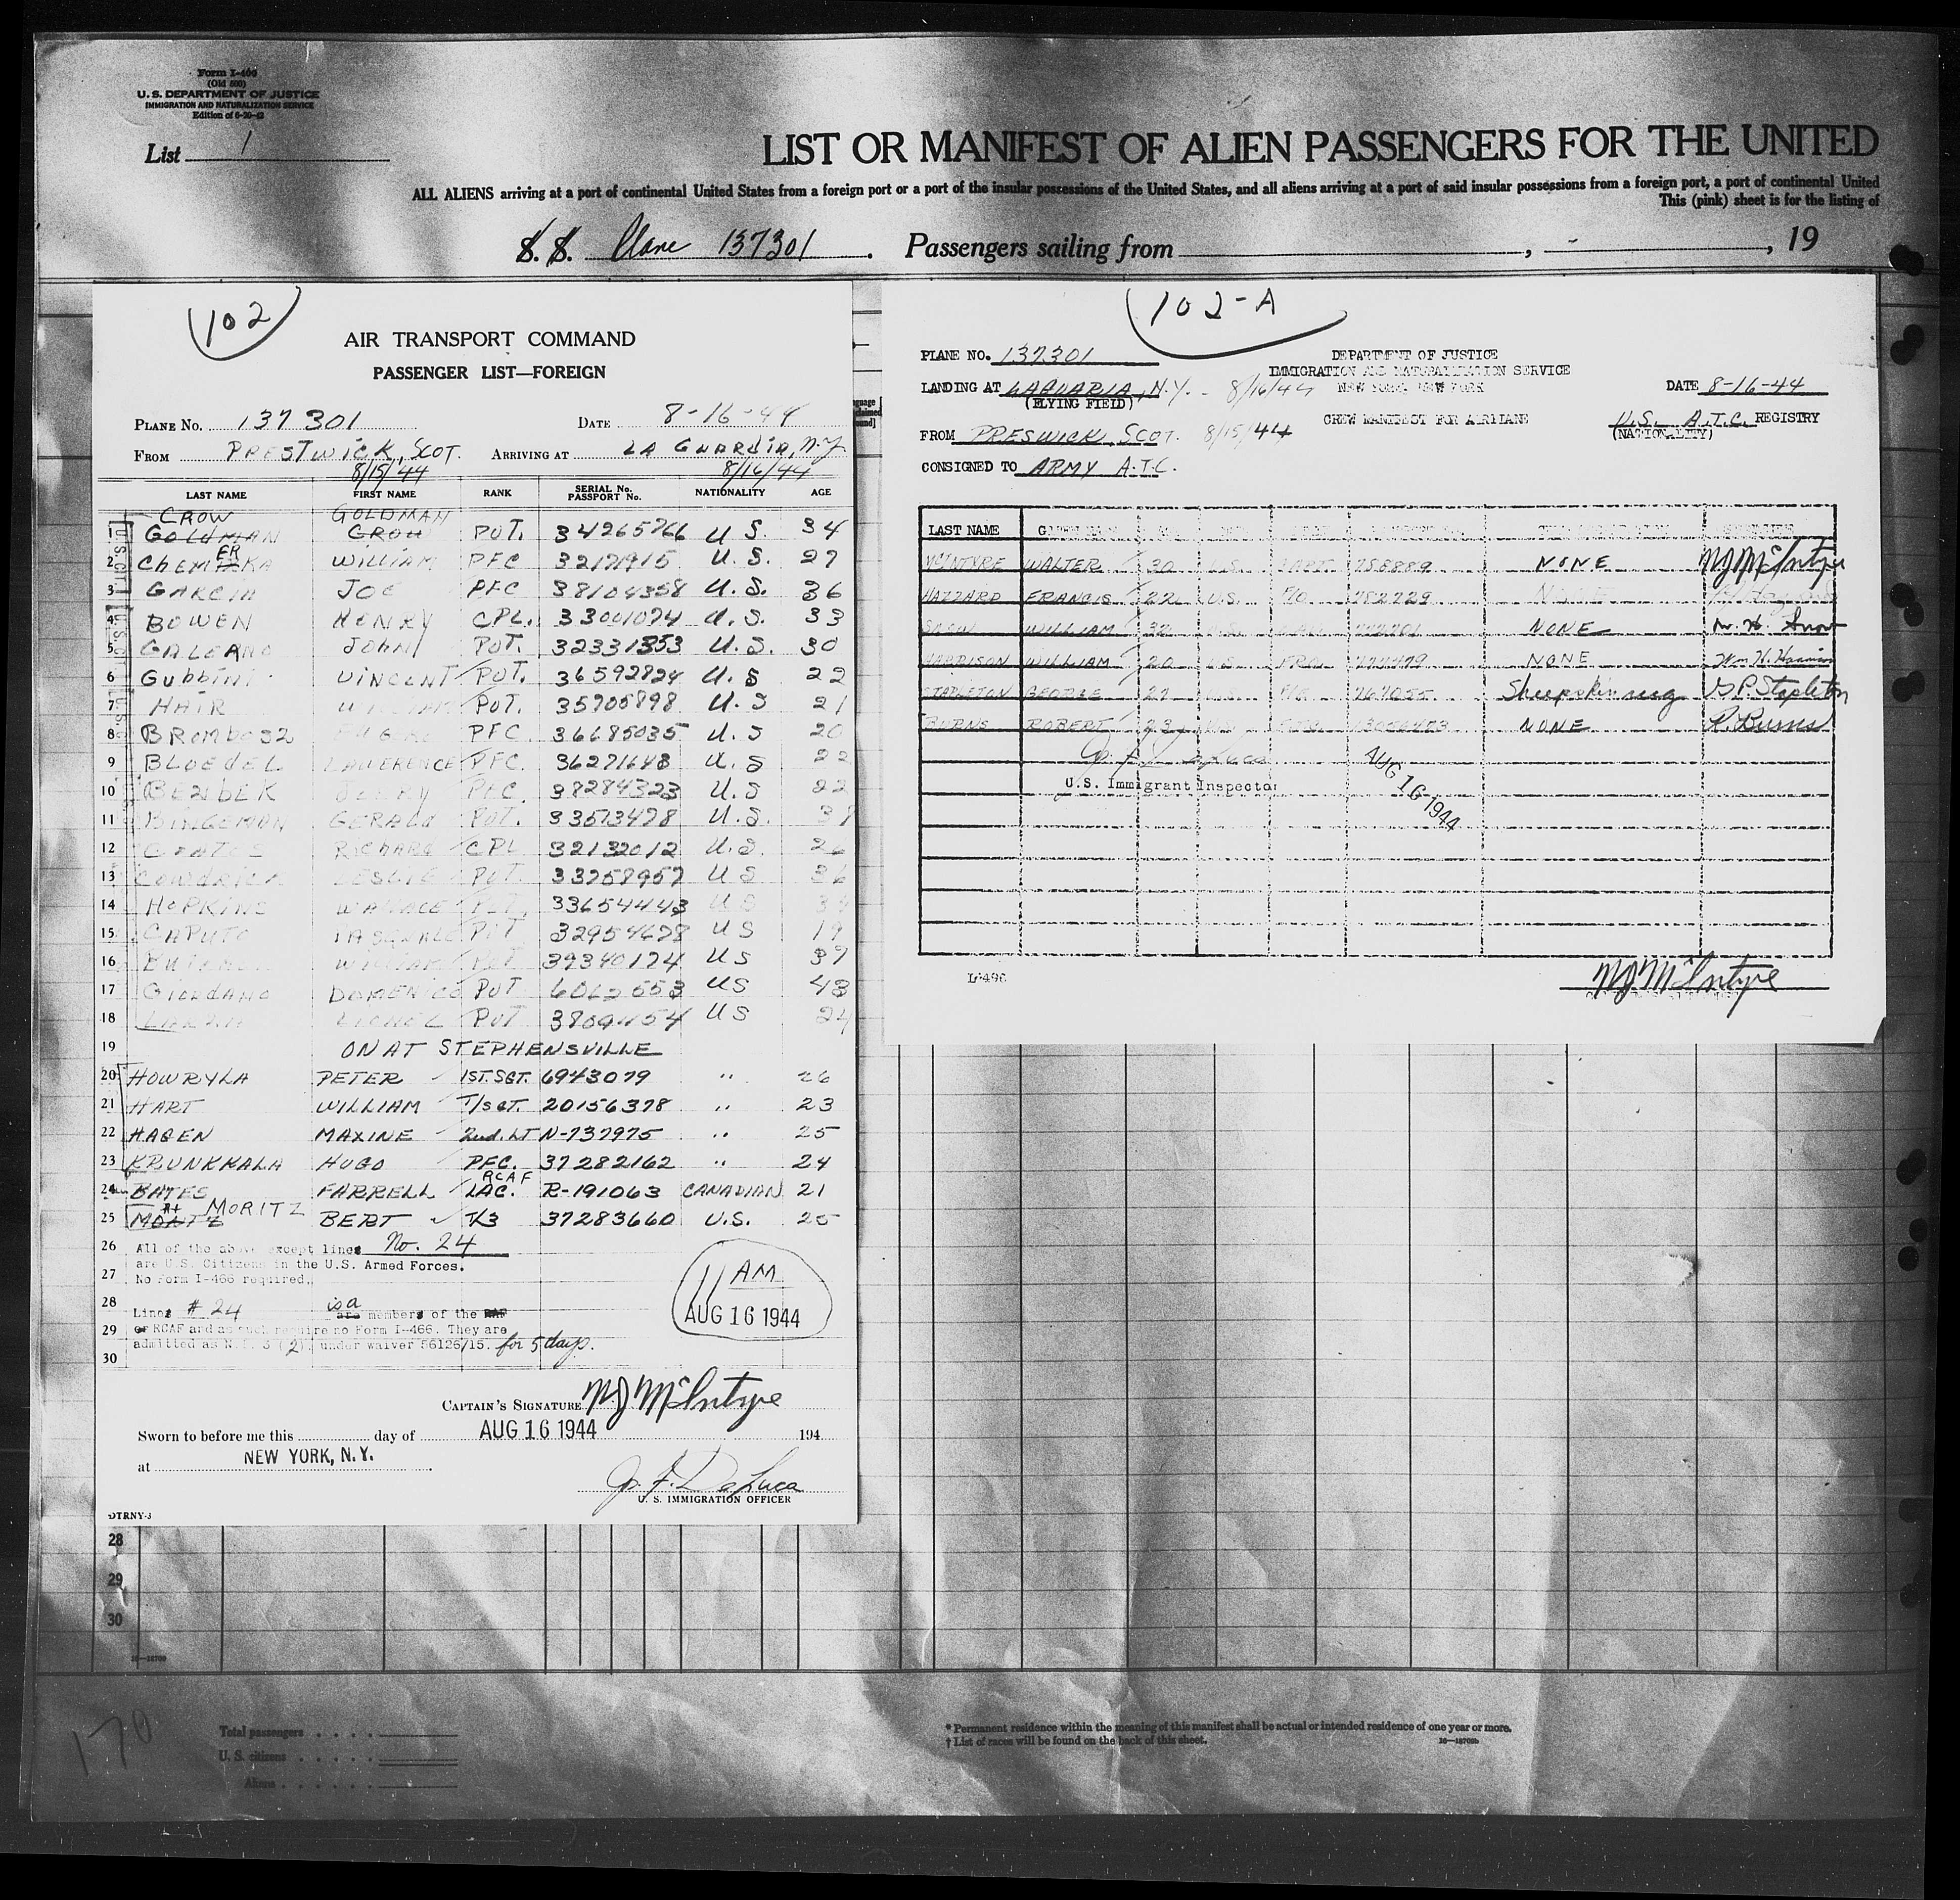 Form I-466
(Old 500)
U. S. DEPARTMENT OF JUSTICE
IMMIGRATION AND NATURALIZATION SERVICE
Edition of 6-20-42
List 1
LIST OR MANIFEST OF ALIEN PASSENGERS FOR THE UNITED
ALL ALIENS arriving at a port of continental United States from a foreign port or a port of the insular possessions of the United States, and all aliens arriving at a port of said insular possessions from a foreign port, a port of continental United
This (pink) sheet is for the listing of
S. S. Plane 137301. Passengers sailing from , , 19
102
AIR TRANSPORT COMMAND
PASSENGER LIST—FOREIGN
PLANE NO. 137301 DATE 8-16-44
FROM PRESTWICK, SCOT. ARRIVING AT LA GUARDIA, N.Y.
8/15/44 8/16/44
LAST NAME FIRST NAME RANK SERIAL No. PASSPORT No. NATIONALITY AGE
CROW GOLDMAN
1 GOLDMAN CROW PVT. 34265766 U S. 34
2 CHEM ER KA WILLIAM PFC 3217915 U. S. 27
3 GARCIA JOE PFC 38104358 U. S. 36
4 BOWEN HENRY CPL. 33001074 U. S. 33
5 GALEANO JOHN PVT. 32331353 U. S. 30
6 GUBBINI VINCENT PVT. 36592824 U. S 22
7 HAIR PVT. 35705898 U. S 21
8 BROMBOSZ PFC 36685035 U. S 20
9 BLOEDEL LAWERENCE PFC. 36271648 U. S 22
10 BENDEK JERRY PFC. 38284323 U. S 22
11 BINGEMAN GERALD PVT. 33573478 U. S.
12 RICHARD CPL 32132012 U. S. 26
13 LESLIE PVT. 33258957 U S 36
14 HOPKINS WALLACE PVT. 33654443 U S
15 CAPUTO PASQUALE PVT 32954678 U S 19
16 WILLIAM PVT 39340174 U S 37
17 GIORDANO DOMENICO PVT 6062553 U S 43
18 LIONEL PVT U S 24
19 ON AT STEPHENSVILLE
20 HOWRYLA PETER 1ST. SGT. 6943079 " 26
21 HART WILLIAM T/SGT. 20156378 " 23
22 HAGEN MAXINE 2nd. LT N-737975 " 25
23 KRUNKKALA HUGO PFC. 37282162 " 24
RCAF
24 BATES FARRELL LAC. R-191063 CANADIAN 21
MORITZ
25 BERT T/3 37283660 U.S. 25
26 All of the above except lines No. 24
are U.S. Citizens in the U.S. Armed Forces.
27 No Form I-466 required.
28 Lines # 24 is a are members of the RAF
29 or RCAF and as such require no Form I-466. They are
admitted as N.I. 3 (2) under waiver 56126/15. for 5 days.
30
11 AM
AUG 16 1944
CAPTAIN'S SIGNATURE WJ McIntyre
Sworn to before me this day of AUG 16 1944 194
at NEW YORK, N.Y.
J. F. DeLuca
U. S. IMMIGRATION OFFICER
DTRNY-3
28
29
30
16—18709
170
Total passengers
U. S. citizens
Aliens
102-A
PLANE NO. 137301
DEPARTMENT OF JUSTICE
IMMIGRATION AND NATURALIZATION SERVICE
NEW YORK, NEW YORK
LANDING AT LAGUARIA, N.Y. - 8/16/44
(FLYING FIELD)
DATE 8-16-44
CREW MANIFEST FOR AIRPLANE
U.S. A.T.C. REGISTRY
(NATIONALITY)
FROM PRESWICK, SCOT. 8/15/44
CONSIGNED TO ARMY A.T.C.
LAST NAME
McINTYRE WALTER 30 U.S. CAPT. NONE WJ McIntyre
HAZZARD FRANCIS 22 U.S. F/O 752729 NONE
SNOW WILLIAM 32 U.S. NONE W. H. Snow
HARRISON WILLIAM 20 U.S. NONE Wm H. Harrison
STAPLETON GEORGE 27 U.S. Sheepskin rug G P. Stapleton
BURNS ROBERT 23 U.S. NONE R. Burns
J. F. DeLuca
U.S. Immigrant Inspector
AUG 16 1944
WJ McIntyre
* Permanent residence within the meaning of this manifest shall be actual or intended residence of one year or more.
† List of races will be found on the back of this sheet.